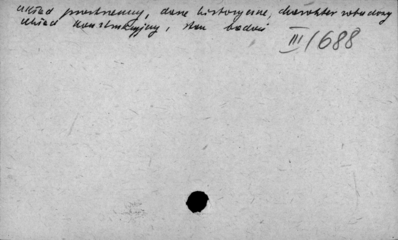 układ przestrzenny, dane historyczne, charakter zabudowy
układ konstrukcyjny, stan badań
III/688